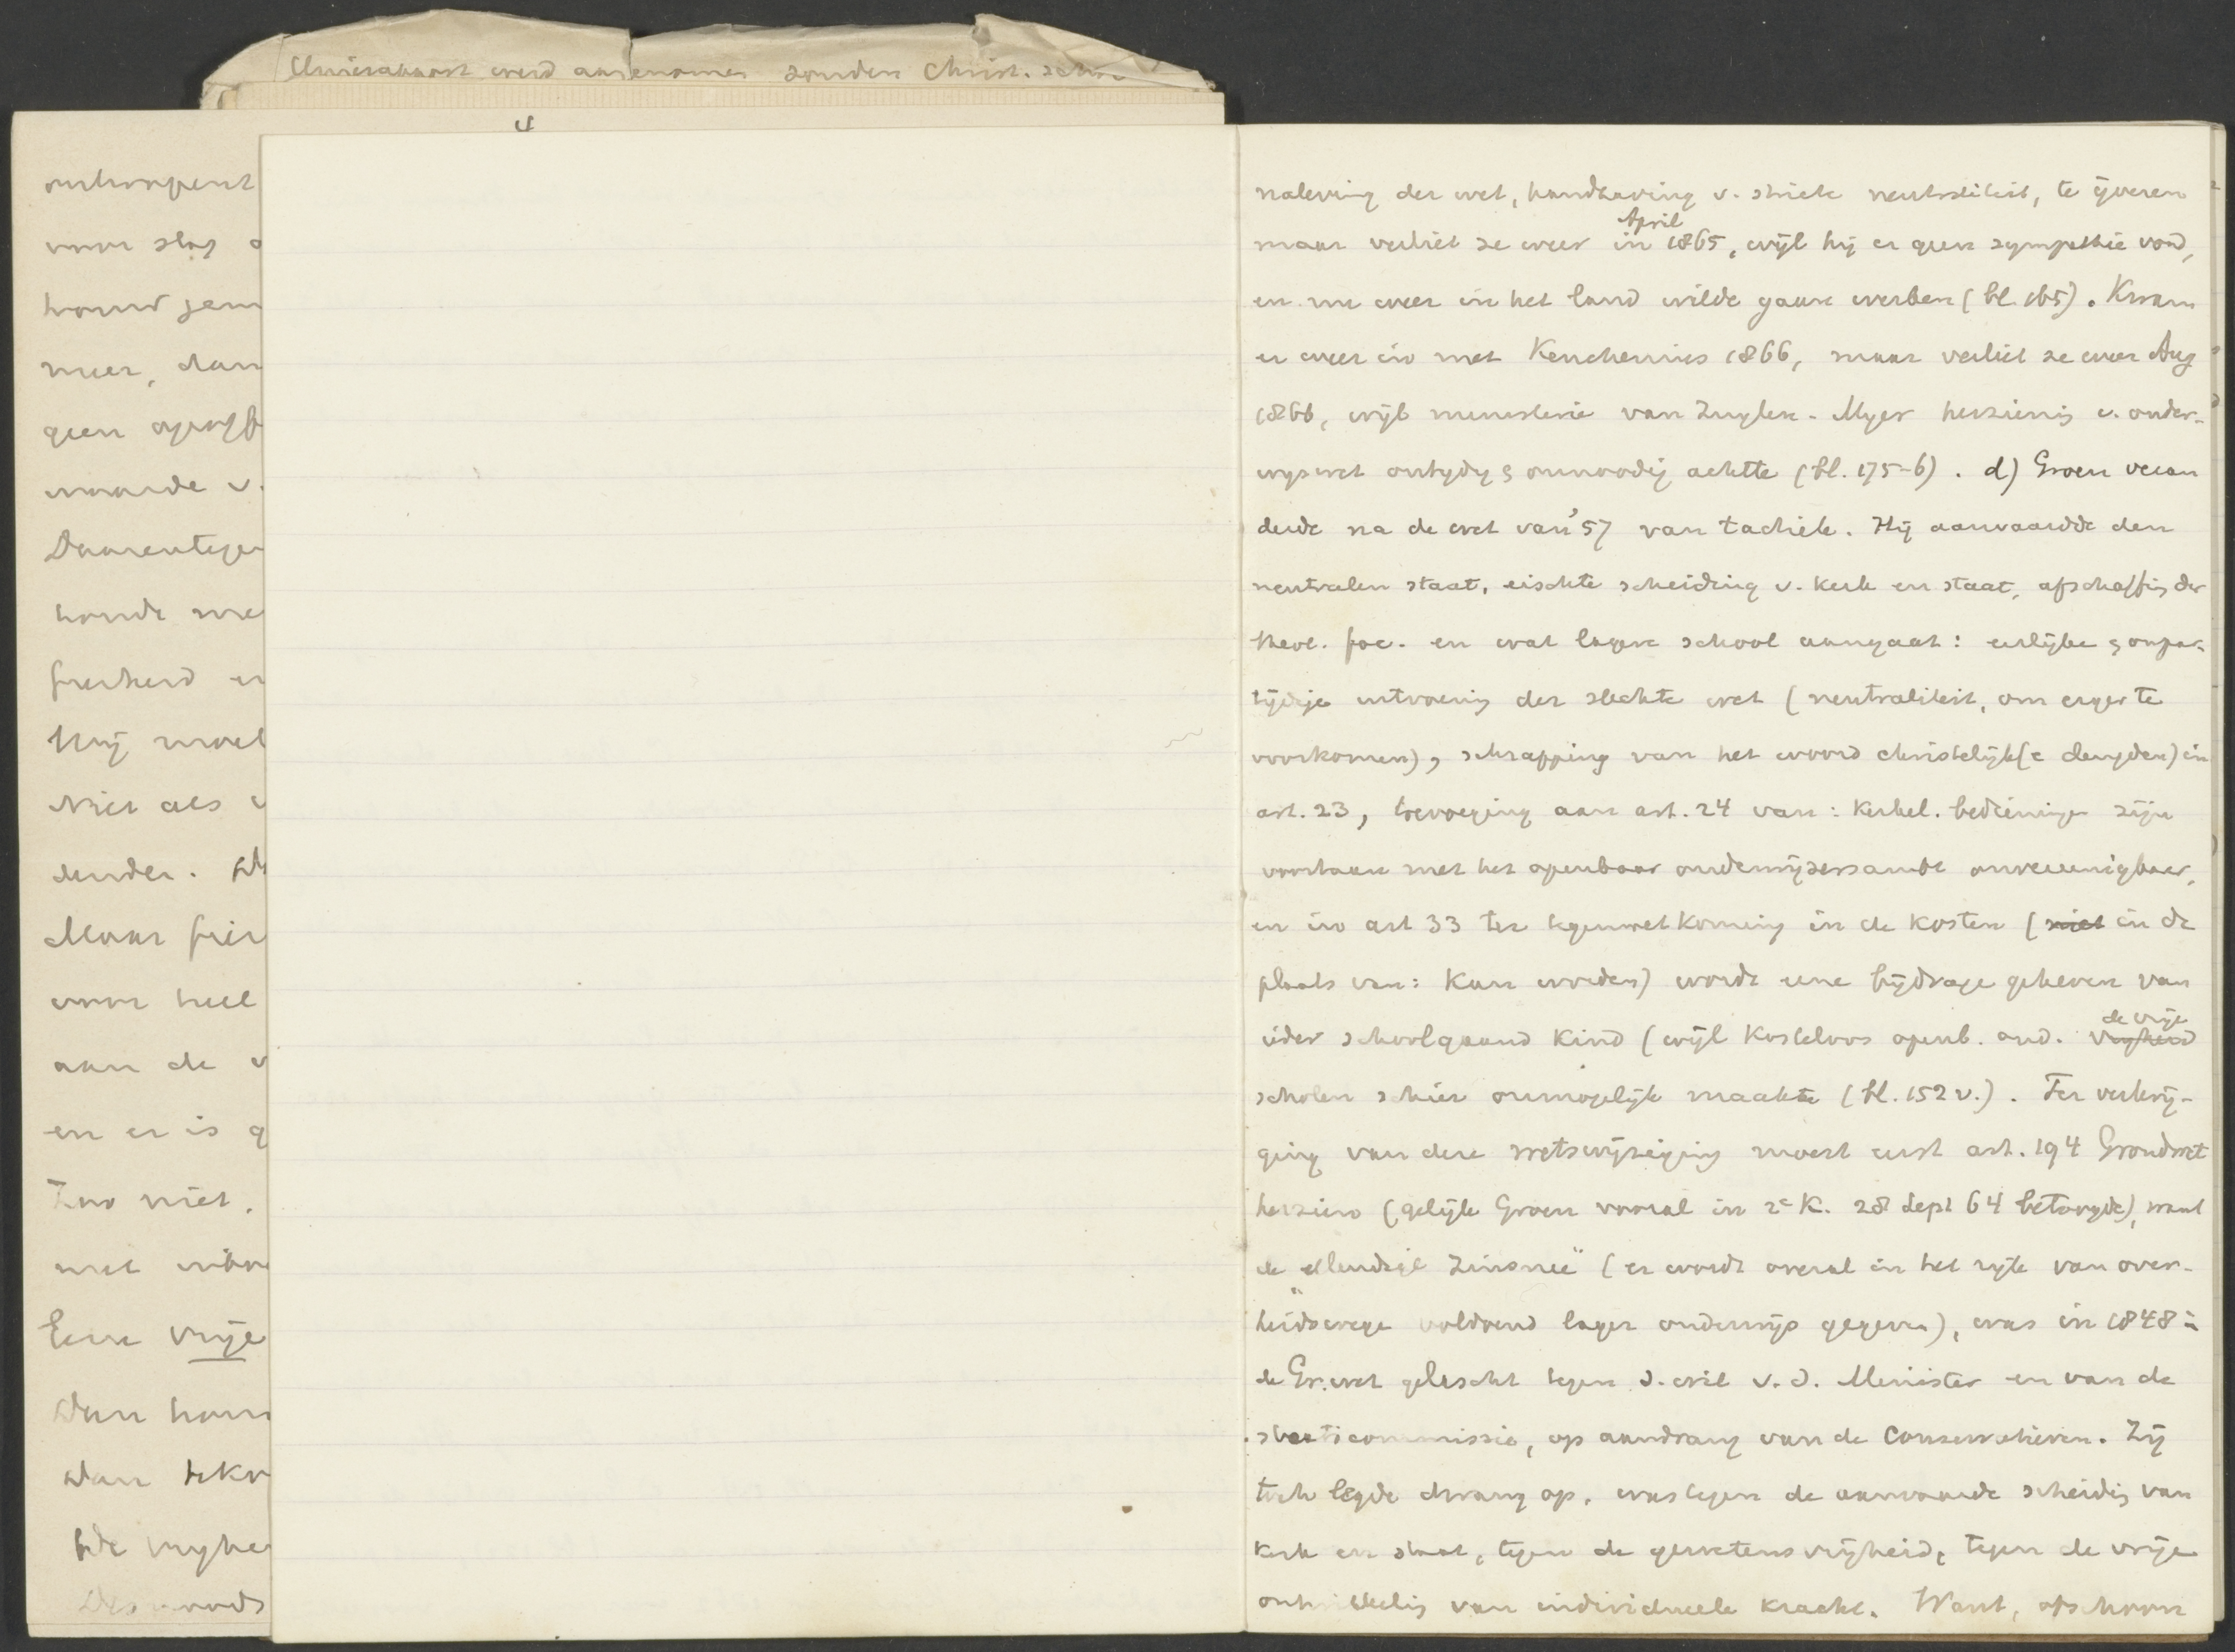 Unierapport werd aangenomen zonder Christ. school
4
voor slag
meer, dan
geen
waarde v.
Daarentegen
Hij moet
Niet als
Maar hier
voor heel
aan de v
en er is g
Zoo niet,
met
Eene vrije
Dan
Dan
de vryhe
naleving der wet, handhaving v. strikte neutraliteit, te ijveren
maar verliet ze weer in April 1865, wijl hij er geen sympathie vond,
en nu weer in het land wilde gaan werken (bl. 165). Kwam
er weer in met Keuchenius 1866, maar verliet ze weer Aug
1866, wijl ministerie van Zuylen-Myer herziening v. onder-
wyswet ontydig & onnoodig achtte (bl. 175-6). d) Groen veran
derde na de wet van '57 van tactiek. Hij aanvaardde den
neutralen staat, eischte scheiding v. kerk en staat, afschaffing der
theol. fac. en wat lagere school aangaat: eerlijke & onpar-
tijdige uitvoering der slechte wet (neutraliteit, om erger te
voorkomen), schrapping van het woord christelijk(e deugden) in
art. 23, toevoeging aan art. 24 van: kerkel. bedieningen zijn
voortaan met het openbaar onderwijzersambt onvereenigbaar,
en in art 33 ter tegemoetkoming in de kosten (niet in de
plaats van: kan worden) wordt eene bijdrage geheven van
ieder schoolgaand kind (wijl kosteloos openb. ond. vryheid de vrije
scholen schier onmogelijk maakte (bl. 152 v.). Ter verkrij-
ging van deze wetswijziging moest eerst art. 194 Grondwet
herzien (gelijk Groen vooral in 2e K. 28 Sept 64 betoogde), want
de "ellendige zinsnee" (er wordt overal in het ryk van over-
heidswege voldoend lager onderwijs gegeven), was in 1848 in
de Gr.wet gebracht tegen d. wil v. d. Minister en van de
staatscommissie, op aandrang van de Conservatieven. Zij
toch legde dwang op, was tegen de aanvaarde scheiding van
kerk en staat, tegen de gewetensvrijheid, tegen de vrije
ontwikkeling van individueele kracht. Want, ofschoon